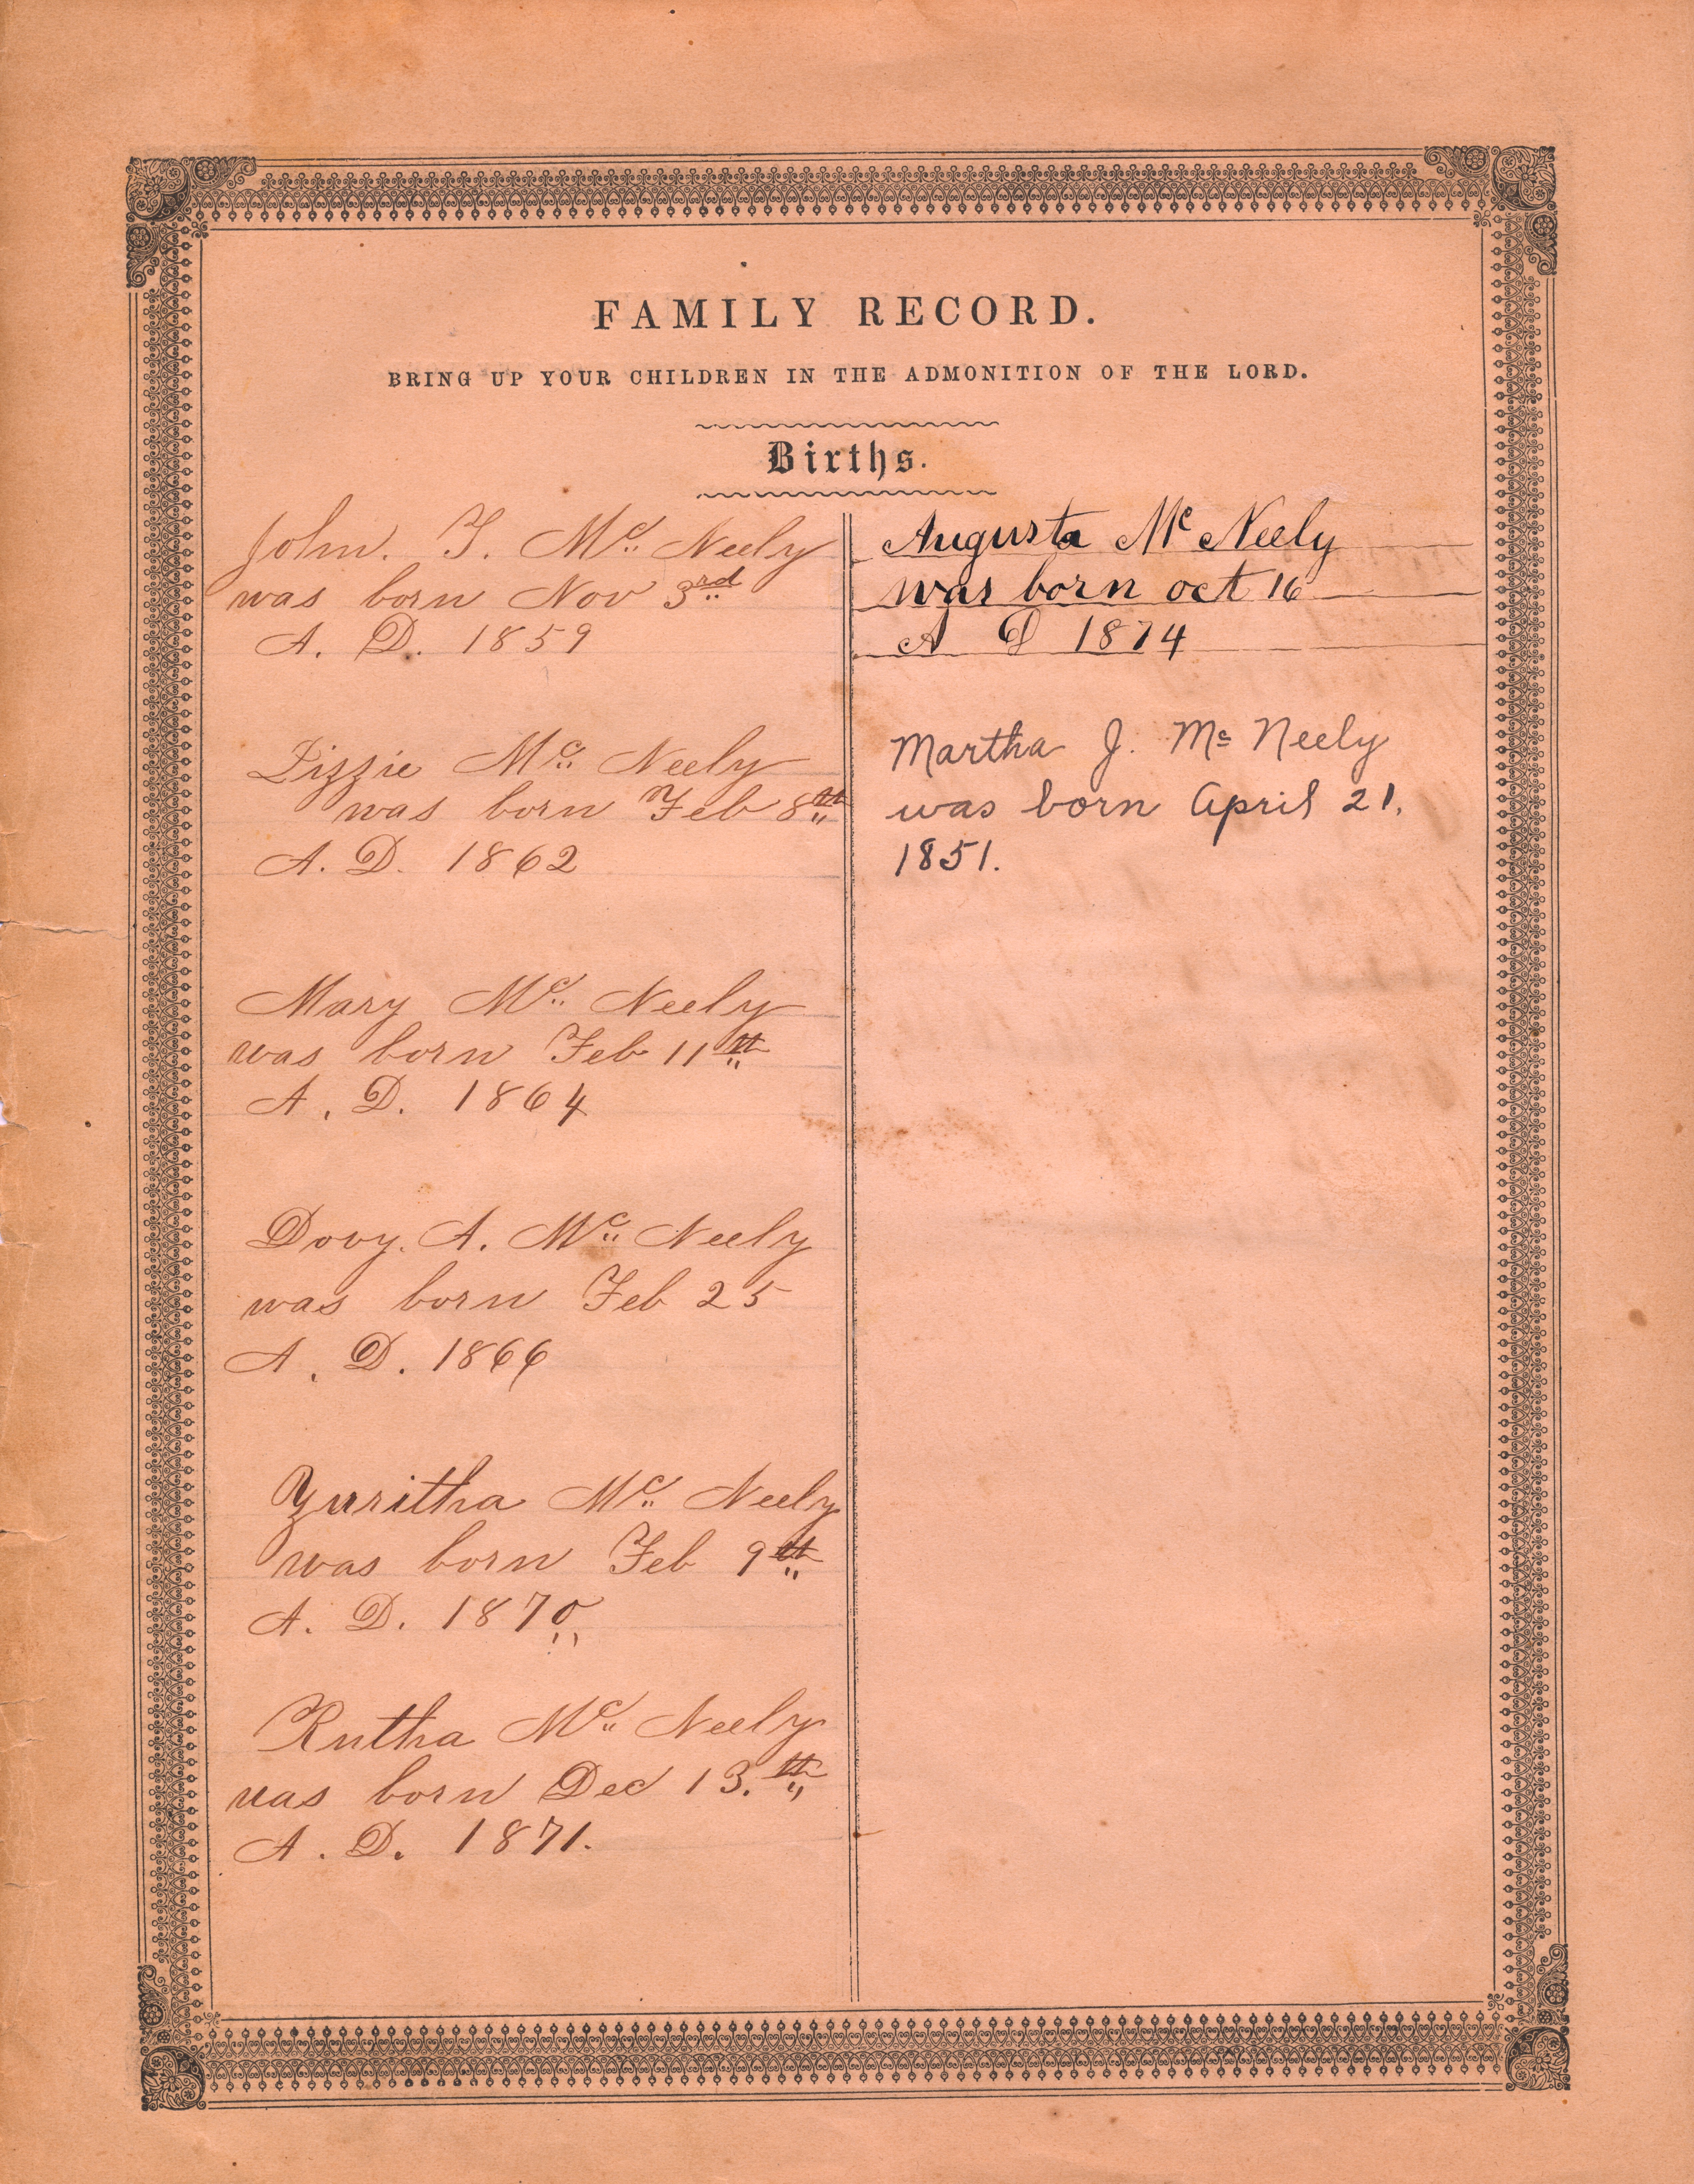 FAMILY RECORD.
BRING UP YOUR CHILDREN IN THE ADMONITION OF THE LORD.
Births.
John. T. Mc Neely
was born Nov 3rd
A. D. 1859
Lizzie Mc Neely
was born Feb 8th
A. D. 1862
Mary Mc Neely
was born Feb 11th
A. D. 1864
Dovy. A. Mc Neely
was born Feb 25
A. D. 1866
Zuritha Mc Neely
was born Feb 9th
A. D. 1870
Rutha Mc Neely
was born Dec 13.th
A. D. 1871.
Augusta Mc Neely
was born oct 16
A D 1874
Martha J. Mc Neely
was born April 21.
1851.